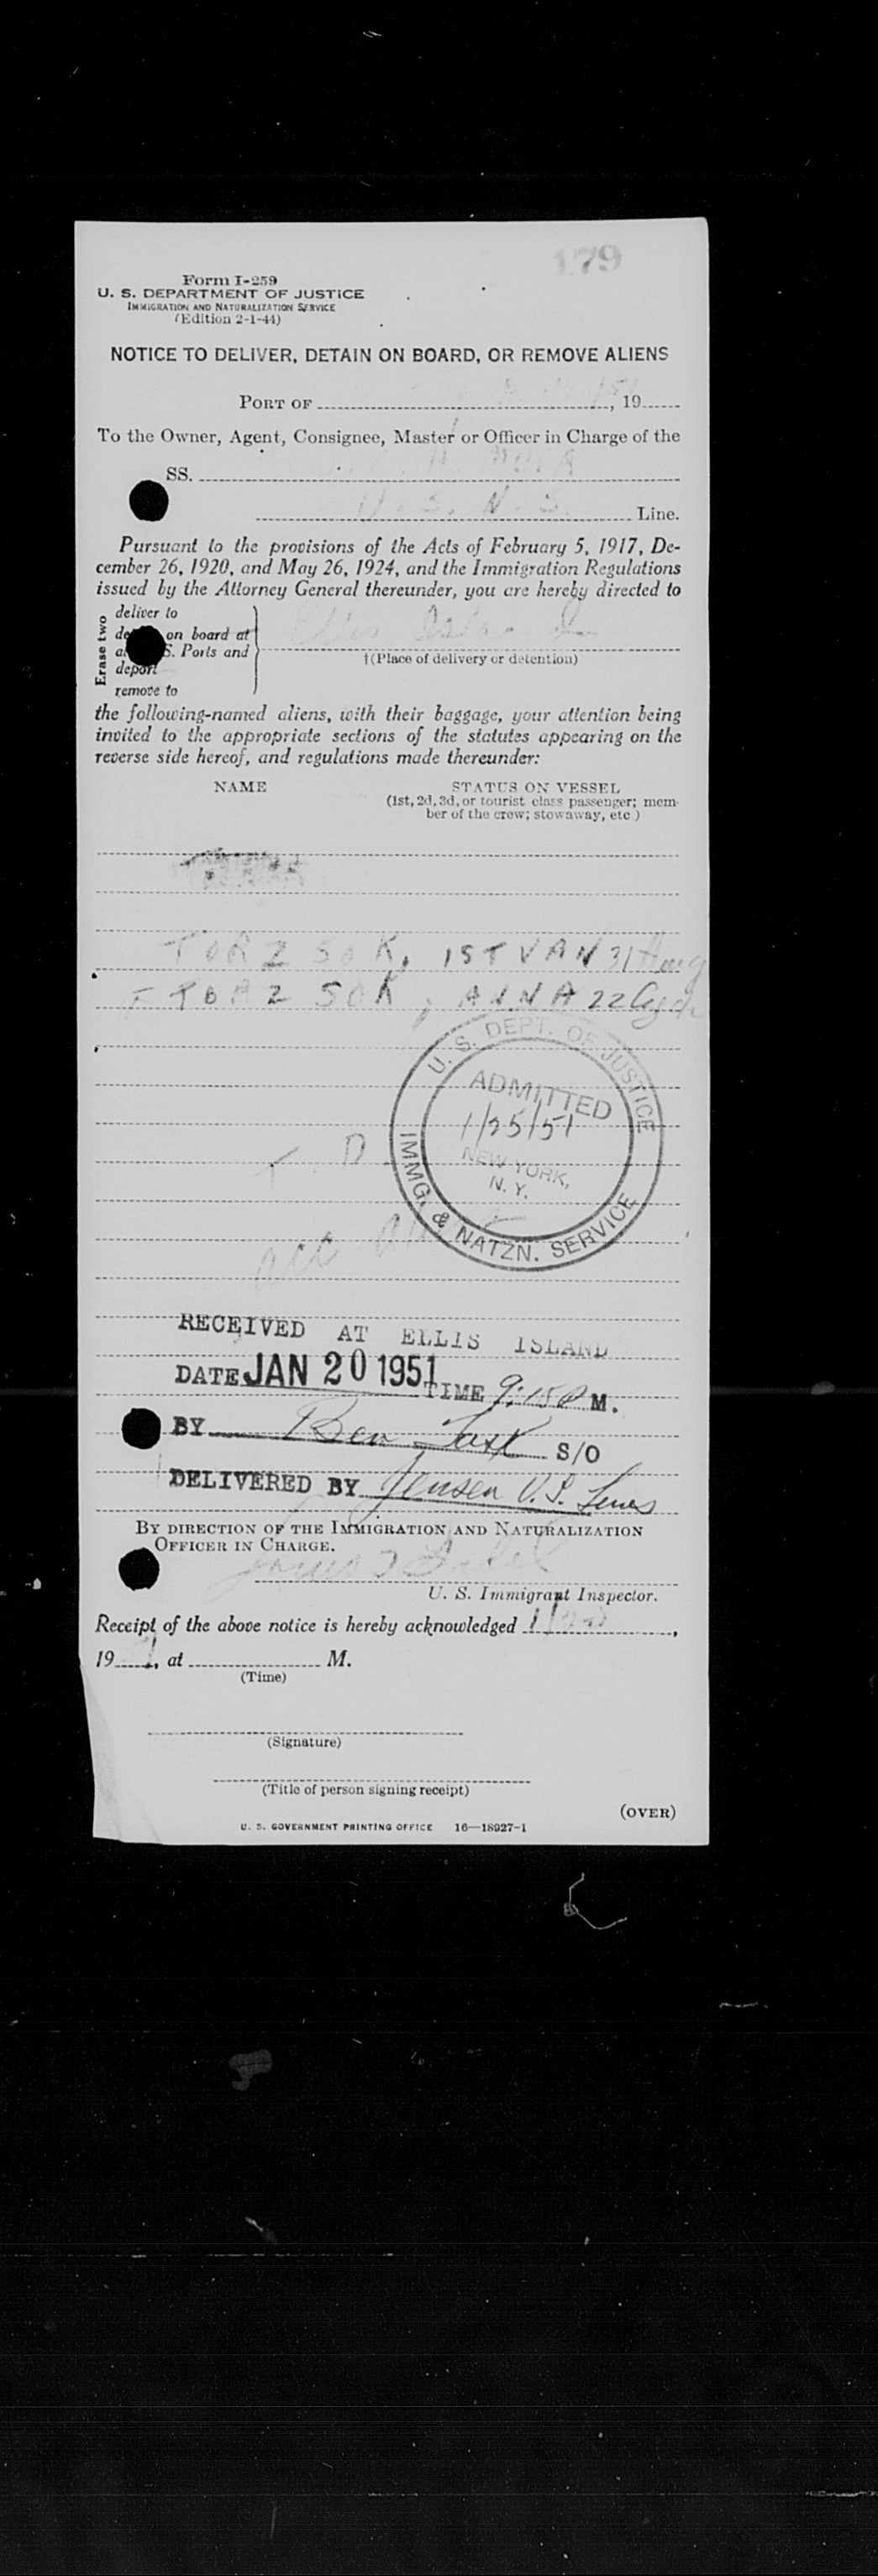 179
Form I-259
U. S. DEPARTMENT OF JUSTICE
IMMIGRATION AND NATURALIZATION SERVICE
(Edition 2-1-44)
NOTICE TO DELIVER, DETAIN ON BOARD, OR REMOVE ALIENS
PORT OF , 19
To the Owner, Agent, Consignee, Master or Officer in Charge of the
SS.
U. S. N. S. Line.
Pursuant to the provisions of the Acts of February 5, 1917, De-
cember 26, 1920, and May 26, 1924, and the Immigration Regulations
issued by the Attorney General thereunder, you are hereby directed to
Erase two
deliver to
on board at
S. Ports and
deport
remove to
Ellis Island
†(Place of delivery or detention)
the following-named aliens, with their baggage, your attention being
invited to the appropriate sections of the statutes appearing on the
reverse side hereof, and regulations made thereunder:
NAME STATUS ON VESSEL
(1st, 2d, 3d, or tourist class passenger; mem-
ber of the crew; stowaway, etc.)
TORZSOK, ISTVAN 31
TORZSOK, ANNA 22
U. S. DEPT. OF JUSTICE
ADMITTED
1/25/51
NEW YORK,
N. Y.
IMMG. & NATZN. SERVICE
T. D.
RECEIVED AT ELLIS ISLAND
DATE JAN 20 1951 TIME 9:15 P M.
BY Ben S/O
DELIVERED BY Jensen U.S. Lines
BY DIRECTION OF THE IMMIGRATION AND NATURALIZATION
OFFICER IN CHARGE.
U. S. Immigrant Inspector.
Receipt of the above notice is hereby acknowledged ,
19 , at M.
(Time)
(Signature)
(Title of person signing receipt)
(OVER)
U. S. GOVERNMENT PRINTING OFFICE 16—18927-1